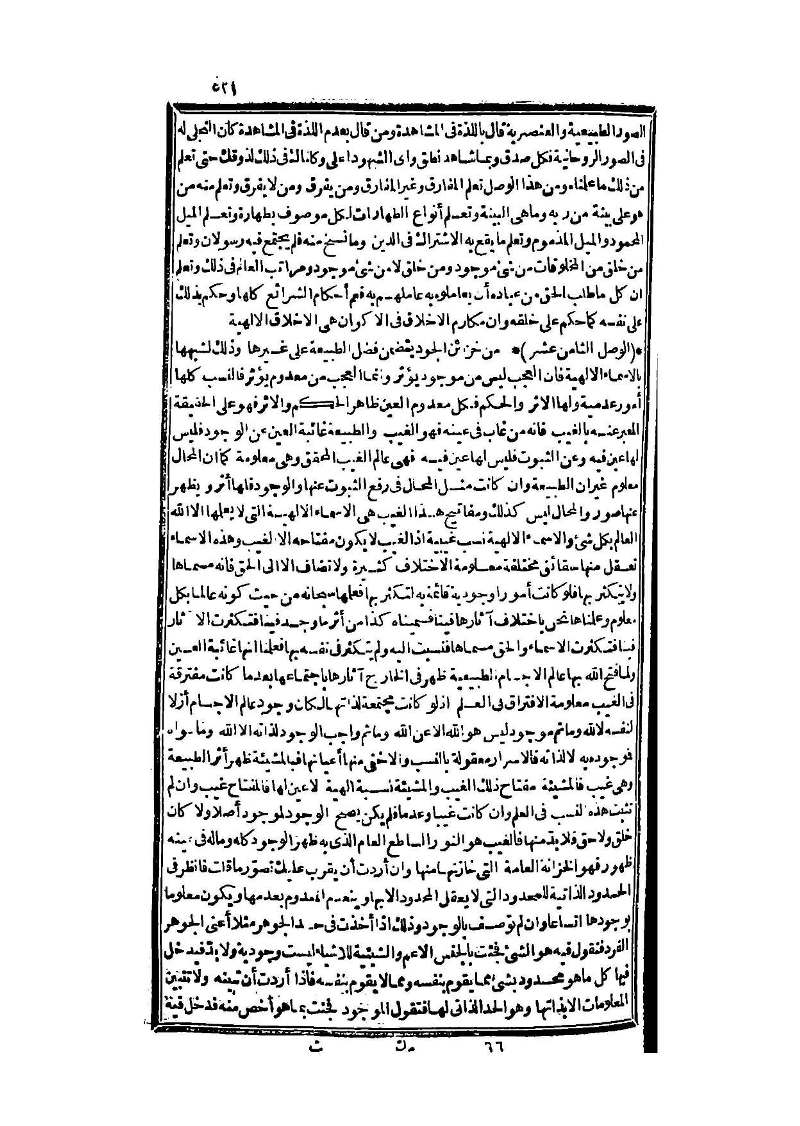 ٥٢١
الصور الطبيعية والعنصرية قال باللذة فى المشاهدة ومن قال بعدم اللذة فى المشاهدة كان التجلى له
فى الصور الروحانية فكل صدق وبما شاهد نطق واى الشهود اعلى وكانا لك فى ذلك لذوقك حتى تعلم
من ذلك ما علمناه ومن هذا الوصل تعلم المفارق وغير المفارق ومن يفرق ومن لا يفرق وتعلم منه من
هو على بينة من ربه وماهى البينة وتعلم أنواع الطهارات لكل موصوف بطهارة وتعلم الميل
المحمود والميل المذموم وتعلم ما يقع به الاشتراك فى الدين وما نسخ منه فلم يجتمع فيه رسولان وتعلم
من خلق من المخلوقات من شئ موجود ومن خلق لا من شئ موجود ومراتب العالم فى ذلك وتعلم
ان كل ما طلب الحق من عباده أن يعاملوه به عاملهم به فعم أحكام الشرائع كلها وحكم بذلك
على نفسه كما حكم على خلقه وان مكارم الاخلاق فى الاكوان هى الاخلاق الالهية
*(الوصل الثامن عشر)* من خزائن الجود يتضمن فضل الطبيعة على غيرها وذلك لشبهها
بالاسماء الالهية فان العجب ليس من موجود يؤثر وانما العجب من معدوم يؤثر فالنسب كلها
أمور عدمية ولها الاثر والحكم فكل معدوم العين ظاهر الحكم والاثر فهو على الحقيقة
المعبر عنه بالغيب فانه من غاب فى عينه فهو الغيب والطبيعة غائبة العين عن الوجود فليس
لها عين فيه وعن الثبوت فليس لها عين فيه فهى عالم الغيب المحقق وهى معلومة كما ان المحال
معلوم غير ان الطبيعة وان كانت مثل المحال فى رفع الثبوت عنها والوجود فلها أثر ويظهر
عنها صور والمحال ليس كذلك ومفاتيح هذا الغيب هى الاسماء الالهية التى لا يعلمها الا الله
العالم بكل شئ والاسماء الالهية نسب غيبية اذ الغيب لا يكون مفتاحه الا لغيب وهذه الاسماء
تعقل منها حقائق مختلفة معلومة الاختلاف كثيرة ولا تضاف الا الى الحق فانه مسماها
ولا يتكثر بها فلو كانت أمورا وجودية قائمة به لتكثر بها فعلمها سبحانه من حيث كونه عالما بكل
معلوم وعلمناها نحن باختلاف آثارها فينا فسميناه كذا من أثر ما وجد فينا فتكثرت الآثار
فينا فتكثرت الاسماء والحق مسماها فنسبت اليه ولم يتكثر فى نفسه بها فعلمنا انها غائبة العين
ولما فتح الله بها عالم الاجسام الطبيعية ظهر فى الخارج آثارها باجتماعها بعدما كانت مفترقة
فى الغيب معلومة الافتراق فى العلم اذ لو كانت مجتمعة لذاتها لكان وجود عالم الاجسام أزلا
لنفسه لا لله وما ثم موجود ليس هو الله الا عن الله وما ثم واجب الوجود لذاته الا الله وما سواه
فوجوده به لا لذاته فالاسرار معقولة بالنسب والاخفى منها أعيانها فبالمشيئة ظهر أثر الطبيعة
وهى غيب فالمشيئة مفتاح ذلك الغيب والمشيئة نسبة الهية لا عين لها فالمفتاح غيب وان لم
تثبت هذه النسب فى العلم وان كانت غيبا وعدما فلم يكن يصح الوجود لموجود أصلا ولا كان
خلق ولا حق فلا بد منها فالغيب هو النور الساطع العام الذى به ظهر الوجود كله وما له فى عينه
ظهور فهو الخزانة العامة التى خازنها منها وان أردت أن يقرب عليك تصور ما قلت فانظر فى
الحدود الذاتية للمحدود التى لا يعقل المحدود الا بها وينعدم المعدوم بعدمها ويكون معلوما
بوجودها اتساعا وان لم توصف بالوجود وذلك اذا أخذت فى حد الجوهر مثلا أعنى الجوهر
الفرد فتقول فيه هو الشئ فجئت بالجنس الاعم والشيئية للاشياء ليست وجودية ولا بد فدخل
فيها كل ما هو محدود بشئ مما يقوم بنفسه ومما لا يقوم بنفسه فاذا أردت أن تبينه ولا تتبين
المعلومات الا بذاتها وهو الحد الذاتى لها فتقول الموجود فجئت بما هو أخص منه فدخل فيه
٦٦ ك ث